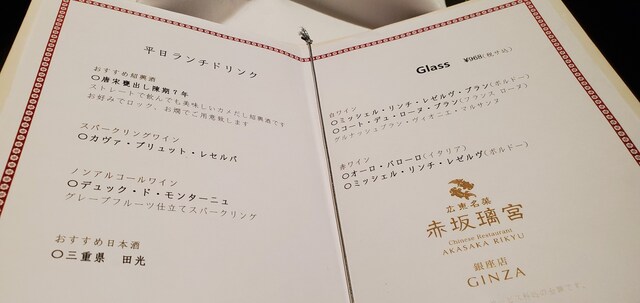 平日ランチドリンク
おすすめ紹興酒
〇唐宋甕出し陳期７年
ストレートで飲んでも美味しいカメだし紹興酒です
お好みでロック、お燗でご用意致します
スパークリングワイン
〇カヴァ・ブリュット・レセルバ
ノンアルコールワイン
〇デュック・ド・モンターニュ
グレープフルーツ仕立てスパークリング
おすすめ日本酒
〇三重県　田光
Glass　¥968(税サ込)
白ワイン
〇ミッシェル・リンチ・レゼルヴ・ブラン(ボルドー)
〇コート・デュ・ローヌ・ブラン(フランス ローヌ)
グルナッシュブラン・ヴィオニエ・マルサンヌ
赤ワイン
〇オーロ・バローロ(イタリア)
〇ミッシェル・リンチ・レゼルヴ(ボルドー)
広東名菜
赤坂璃宮
Chinese Restaurant
AKASAKA RIKYU
銀座店
GINZA